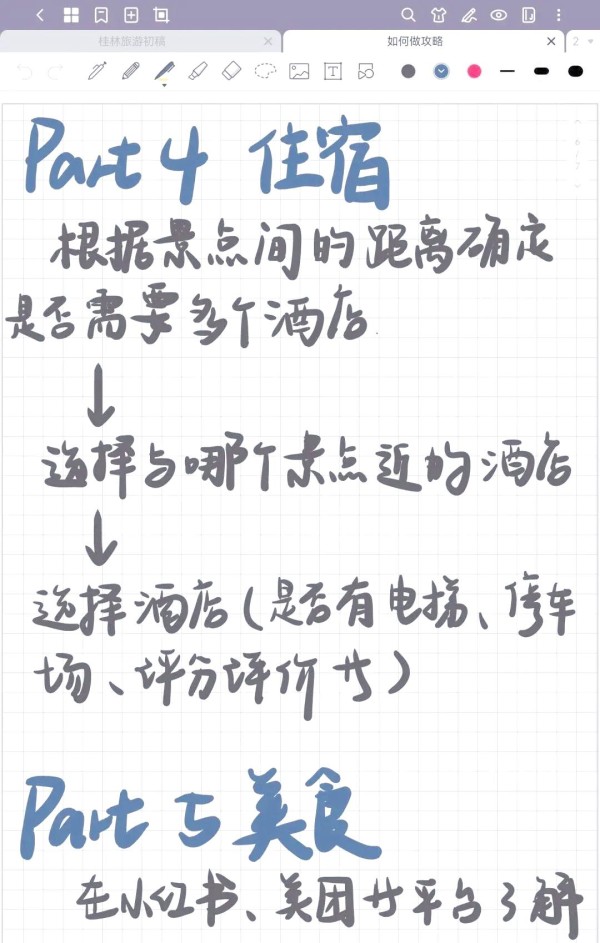 桂林旅游初稿
如何做攻略
2
6/7
Part 4 住宿
根据景点间的距离确定
是否需要多个酒店
选择与哪个景点近的酒店
选择酒店(是否有电梯、停车
场、评分评价廿)
Part 5 美食
在小红书、美团廿平台了解